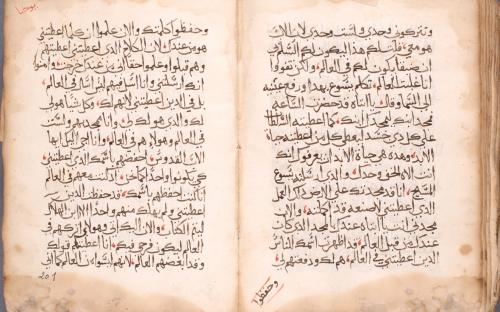 وتتركوني وحدي ولست وحدي لان الاب
هو معي قلت لكم هذا ليكون لكم السلم في
ان ضيقا يكون لكم في العالم ولكن ثقوا
انا غلبت العالم تكلم يسوع بهذا ورفع عينيه
الى السما وقال يا ابتاه قد حضرت الساعه
مجد ابنك ليمجدك ابنك كما اعطيته السلطان
على كل ذي جسد ليعطي كل من اعطيته حياة
الابد وهذه هي حياة الابد ان يعرفوك انك
انت الاله الحق وحدك والذي ارسلته يسوع
المسيح انا قد مجدتك على الارض ذاك العمل
الذي اعطيتني لاصنعه قد اكملته والان
مجدني انت يا ابتاه عندك بالمجد الذي كان
عندك من قبل العالم قد اظهرت اسمك للناس
الذين اعطيتني من العالم هم لك ودفعتهم لي
وحفظوا
يوحنا
وحفظوا كلمتك والان علموا ان كلما اعطيتني
هو من عندك لان الكلام الذي اعطيتني اعطيتهم
وهم قبلوا وعلموا حقا اني من عندك خرجت وامنوا
انك ارسلتني وانا اسل فيهم ليس اسل في العالم
بل في الذين اعطيتني لانهم لك وكل شيا هو لي
لك والذي هو لك لي وانا ممجد بهم ولست
في العالم وهولاء هم في العالم وانا اجي اليك ايها
الاب القدوس احفظهم باسمك الذي اعطيتني
كي يكونوا واحدا كما نحن اذ كنت معهم في العالم
انا كنت احفظهم باسمك قد حفظت الذين
اعطيتني ولم يهلك منهم واحد الا ابن الهلاك
ليتم الكتاب والان اليك اتي وهو لي اتركهم في
العالم ليكون فرحي فيهم انا اعطيتهم قولك
وقد ابغضهم العالم لانهم ليسوا من العالم كما اني
201